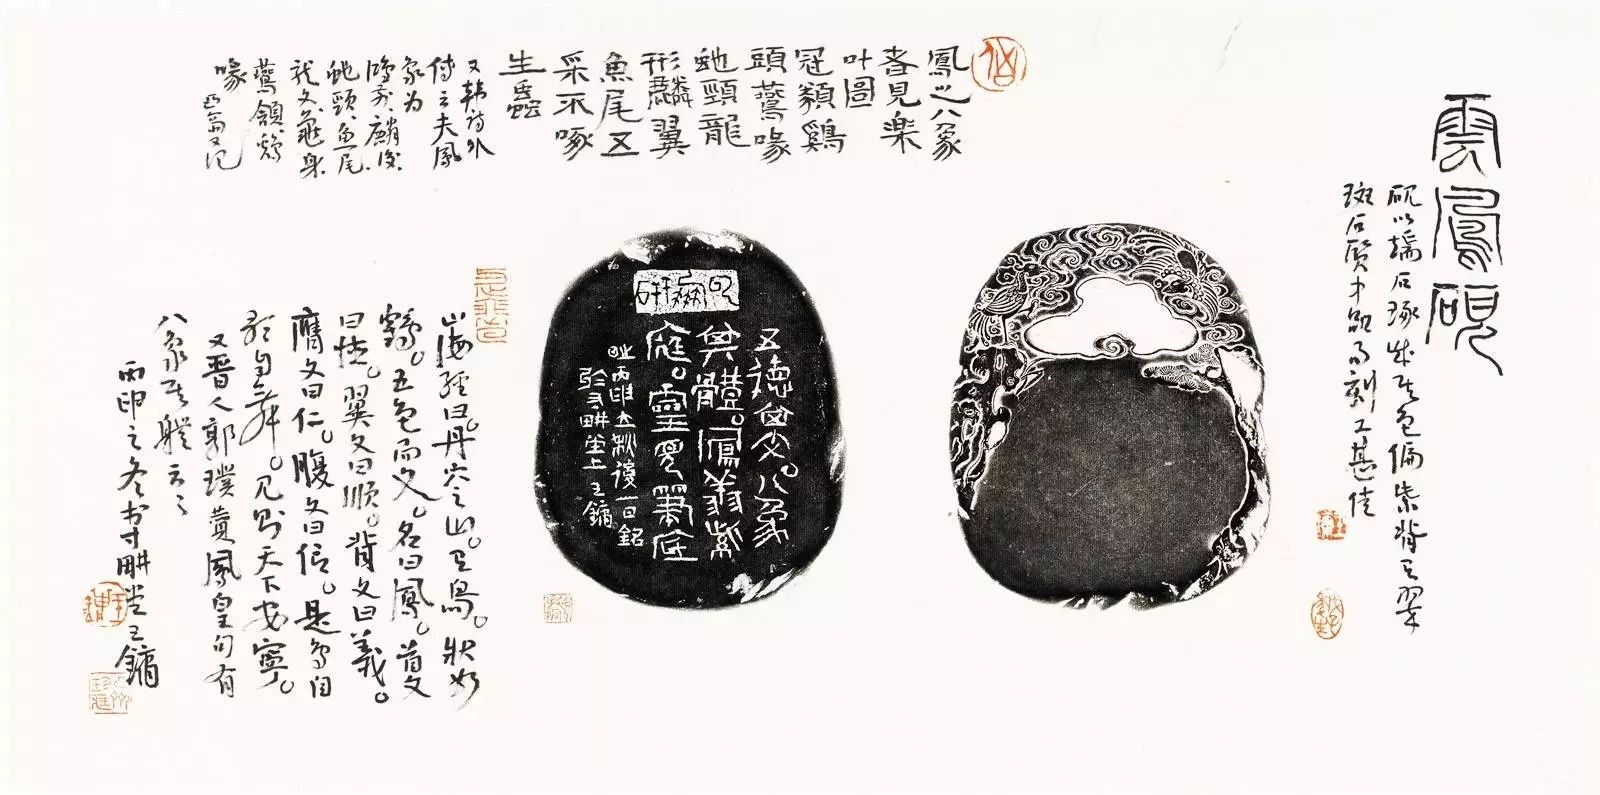 雲鳳硯
硯以端石琢成其色偏紫背有翠
斑石質 刻工甚佳
鳳之八象
者見樂
叶圖
冠類鷄
頭鷰喙
虵頸龍
形麟翼
魚尾五
采不啄
生蟲
又韓詩外
傳云夫鳳
象为
鴻前麟後
虵頸魚尾
龙文龜身
鷰頷鷄
喙 又记
鳳研
五德 文。八象
其體。鳳翥紫
庭。靈 筆底
丙申立秋後一日銘
於寸耕堂上 王鏞
山海經曰。丹穴之山。有鳥。狀如
鶴。五色而文。名曰鳳。首文
曰德。翼文曰順。背文曰義。
膺文曰仁。腹文曰信。是鳥自
歌自舞。见則天下安寧。
又晋人郭璞贊鳳皇句有
八象其體云云
丙申之冬书寸耕堂王鏞